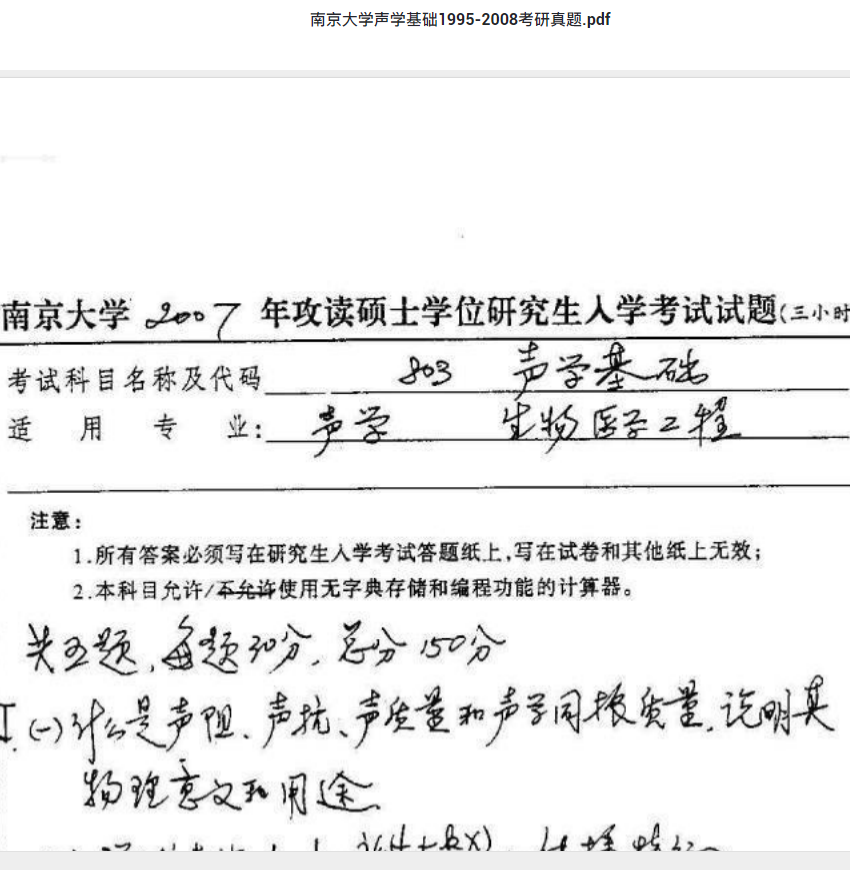 南京大学声学基础1995-2008考研真题.pdf
南京大学 2007 年攻读硕士学位研究生入学考试试题(三小时
考试科目名称及代码 803 声学基础
适用专业: 声学 生物医学工程
注意:
1.所有答案必须写在研究生入学考试答题纸上,写在试卷和其他纸上无效;
2.本科目允许/不允许使用无字典存储和编程功能的计算器。
共五题,每题30分,总分150分
I.(一)什么是声阻、声抗、声质量和声学同振质量,说明其
物理意义和用途.